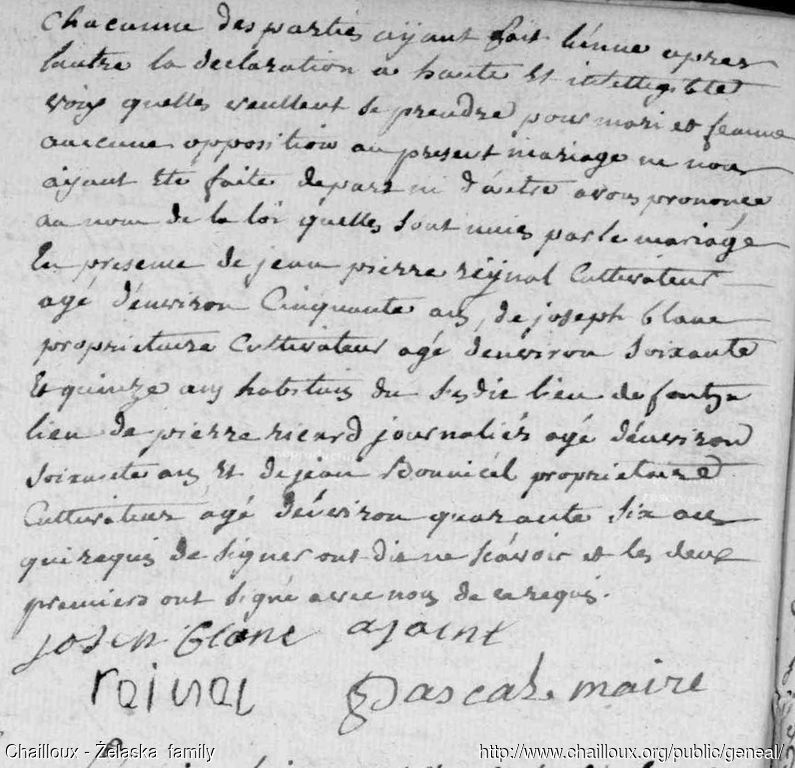 Chacunne des parties ayant fait l'énne apres
lautre la déclaration a haute Et intellegible
voix quelles veullent se prendre pour mari et femme
auccune opposition au present mariage ne nous
ayant Eté faite depart ni d'autre avons prononcé
au nom de la loi quelles sont unies par le mariage
En presence de jean pierre réynal Cultivateur
agé d'énviron Cinquante ans, de joseph blanc
proprietaire Cultivateur agé dénviron soixante
Et quinze ans habitans du susdit lieu de
lieu de pierre ricard journaliér agé d'énviron
soixante ans Et de jean Bounicél proprietaire
Cultivateur agé dénviron quarante six ans
qui requis de signer ont dit ne scavoir et les deux
premiers ont signé avec nous de ce requis.
josep blanc ajoint
rainal Pascal maire
Chailloux - Żelaska family http://www.chailloux.org/public/geneal/